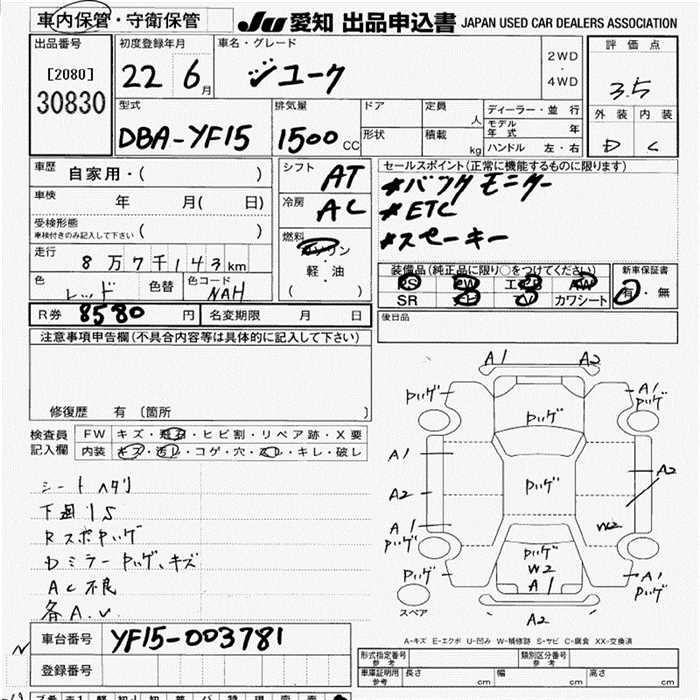 車内保管・守衛保管
JU 愛知 出品申込書 JAPAN USED CAR DEALERS ASSOCIATION
出品番号
[2080]
30830
初度登録年月
22 6月
車名・グレード
ジューク
2WD
・
4WD
評価点
3.5
外装 内装
D C
型式
DBA-YF15
排気量
1500 CC
ドア
形状
定員
人
積載
kg
ディーラー・並行
モデル年式 年
ハンドル 左・右
車歴 自家用・( )
車検 年 月( 日)
受検形態
車検付きのみ記入して下さい ( )
走行
8万7千143km
色
レッド
色替
色コード
NAH
シフト
AT
冷房
AC
燃料
ガソリン
・
軽・油
( )
セールスポイント(正常に機能するものに限ります)
*バックモニター
*ETC
*スペーキー
装備品(純正品に限り○をつけてください)
PS PW エアB AW
SR ナビ TV カワシート
新車保証書
有・無
R券 8580 円
名変期限 月 日
後日品
注意事項申告欄(不具合内容等は具体的に記入して下さい)
修復歴 有 〔箇所 〕
検査員
記入欄
FW キズ・飛石・ヒビ割・リペア跡・X要
内装 キズ・汚レ・コゲ・穴・スレ・キレ・破レ
シートヘタリ
下回りS
RスポPハゲ
DミラーPハゲ、キズ
AC不良
各A.U
A1 A2
Pハゲ A1
Pハゲ
Pハゲ
A1
A2
Pハゲ
A2
A1
Pハゲ
W2
Pハゲ
W2
A1
Pハゲ
A1
Pハゲ
A2
スペア
A-キズ E-エクボ U-凹み W-補修跡 S-サビ C-腐食 XX-交換済
車台番号 YF15-003781
登録番号
形式指定番号
参考
類別区分番号
参考
車庫証明用
参考
長さ cm
幅 cm
高さ cm